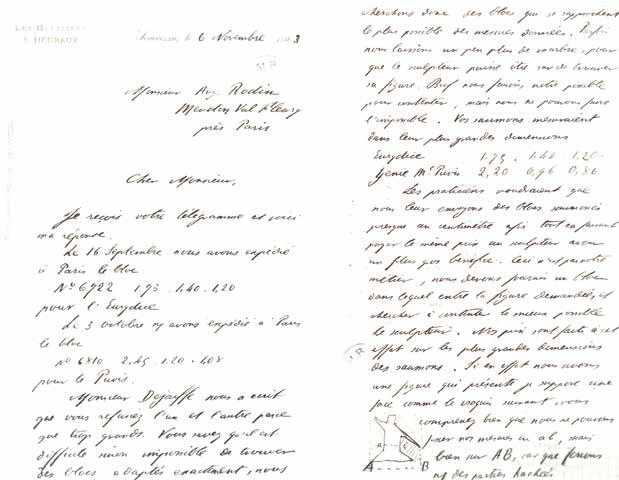 LES HÉRITIERS
S. HENRAUX
le 6 Novembre 3
Monsieur Aug. Rodin
Meudon Val Fleury
près Paris
Cher Monsieur,
Je reçois votre télégramme et voici
ma réponse.
Le 16 Septembre nous avons expédié
à Paris le bloc
No 6722 1.75 . 1.40 . 1.20
pour l'Eurydice
Le 3 octobre ns avons expédié à Paris
le bloc
no 6810 2.45 . 1.20 . 1.08
pour le Puvis.
Monsieur Dejaiffe nous a écrit
que vous refusez l'un et l'autre parce
que trop grands. Vous savez qu'il est
difficile sinon impossible de trouver
des blocs adaptés exactement, nous
cherchons donc des blocs qui se rapprochent
le plus possible des mesures données. Parfois
nous laissons un peu plus de marbre, pour
que le sculpteur puisse être sûr de trouver
sa figure. Bref nous faisons notre possible
pour contenter, mais nous ne pouvons faire
l'impossible. Vos saumons mesuraient
dans leur plus grandes dimensions
Eurydice 1.75 . 1.40 . 1.20
Genie Mt Puvis 2,20 0,96 0,86
Les praticiens voudraient que
nous leur envoyions des blocs
presque au centimètre afin tout en faisant
payer le même prix au sculpteur avoir
un plus gros bénéfice. Ceci n'est pas notre
métier, nous devons fournir un bloc
dans lequel entre la figure demandée, et
chercher à contenter le mieux possible
le sculpteur. Nos prix sont faits à cet
effet sur les plus grandes dimensions
des saumons. Si en effet nous avons
une figure qui présente je suppose une
face comme le croquis suivant, vous
comprenez bien que nous ne pouvons
pas nos mesures en ab, mais
bien sur AB, car que ferions
ns des parties hachées
a b
A B